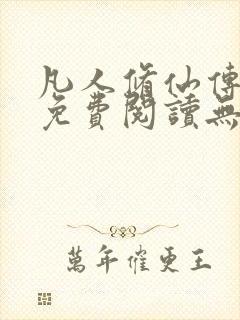 凡人脩仙傳
免費閱讀無
萬年催更王